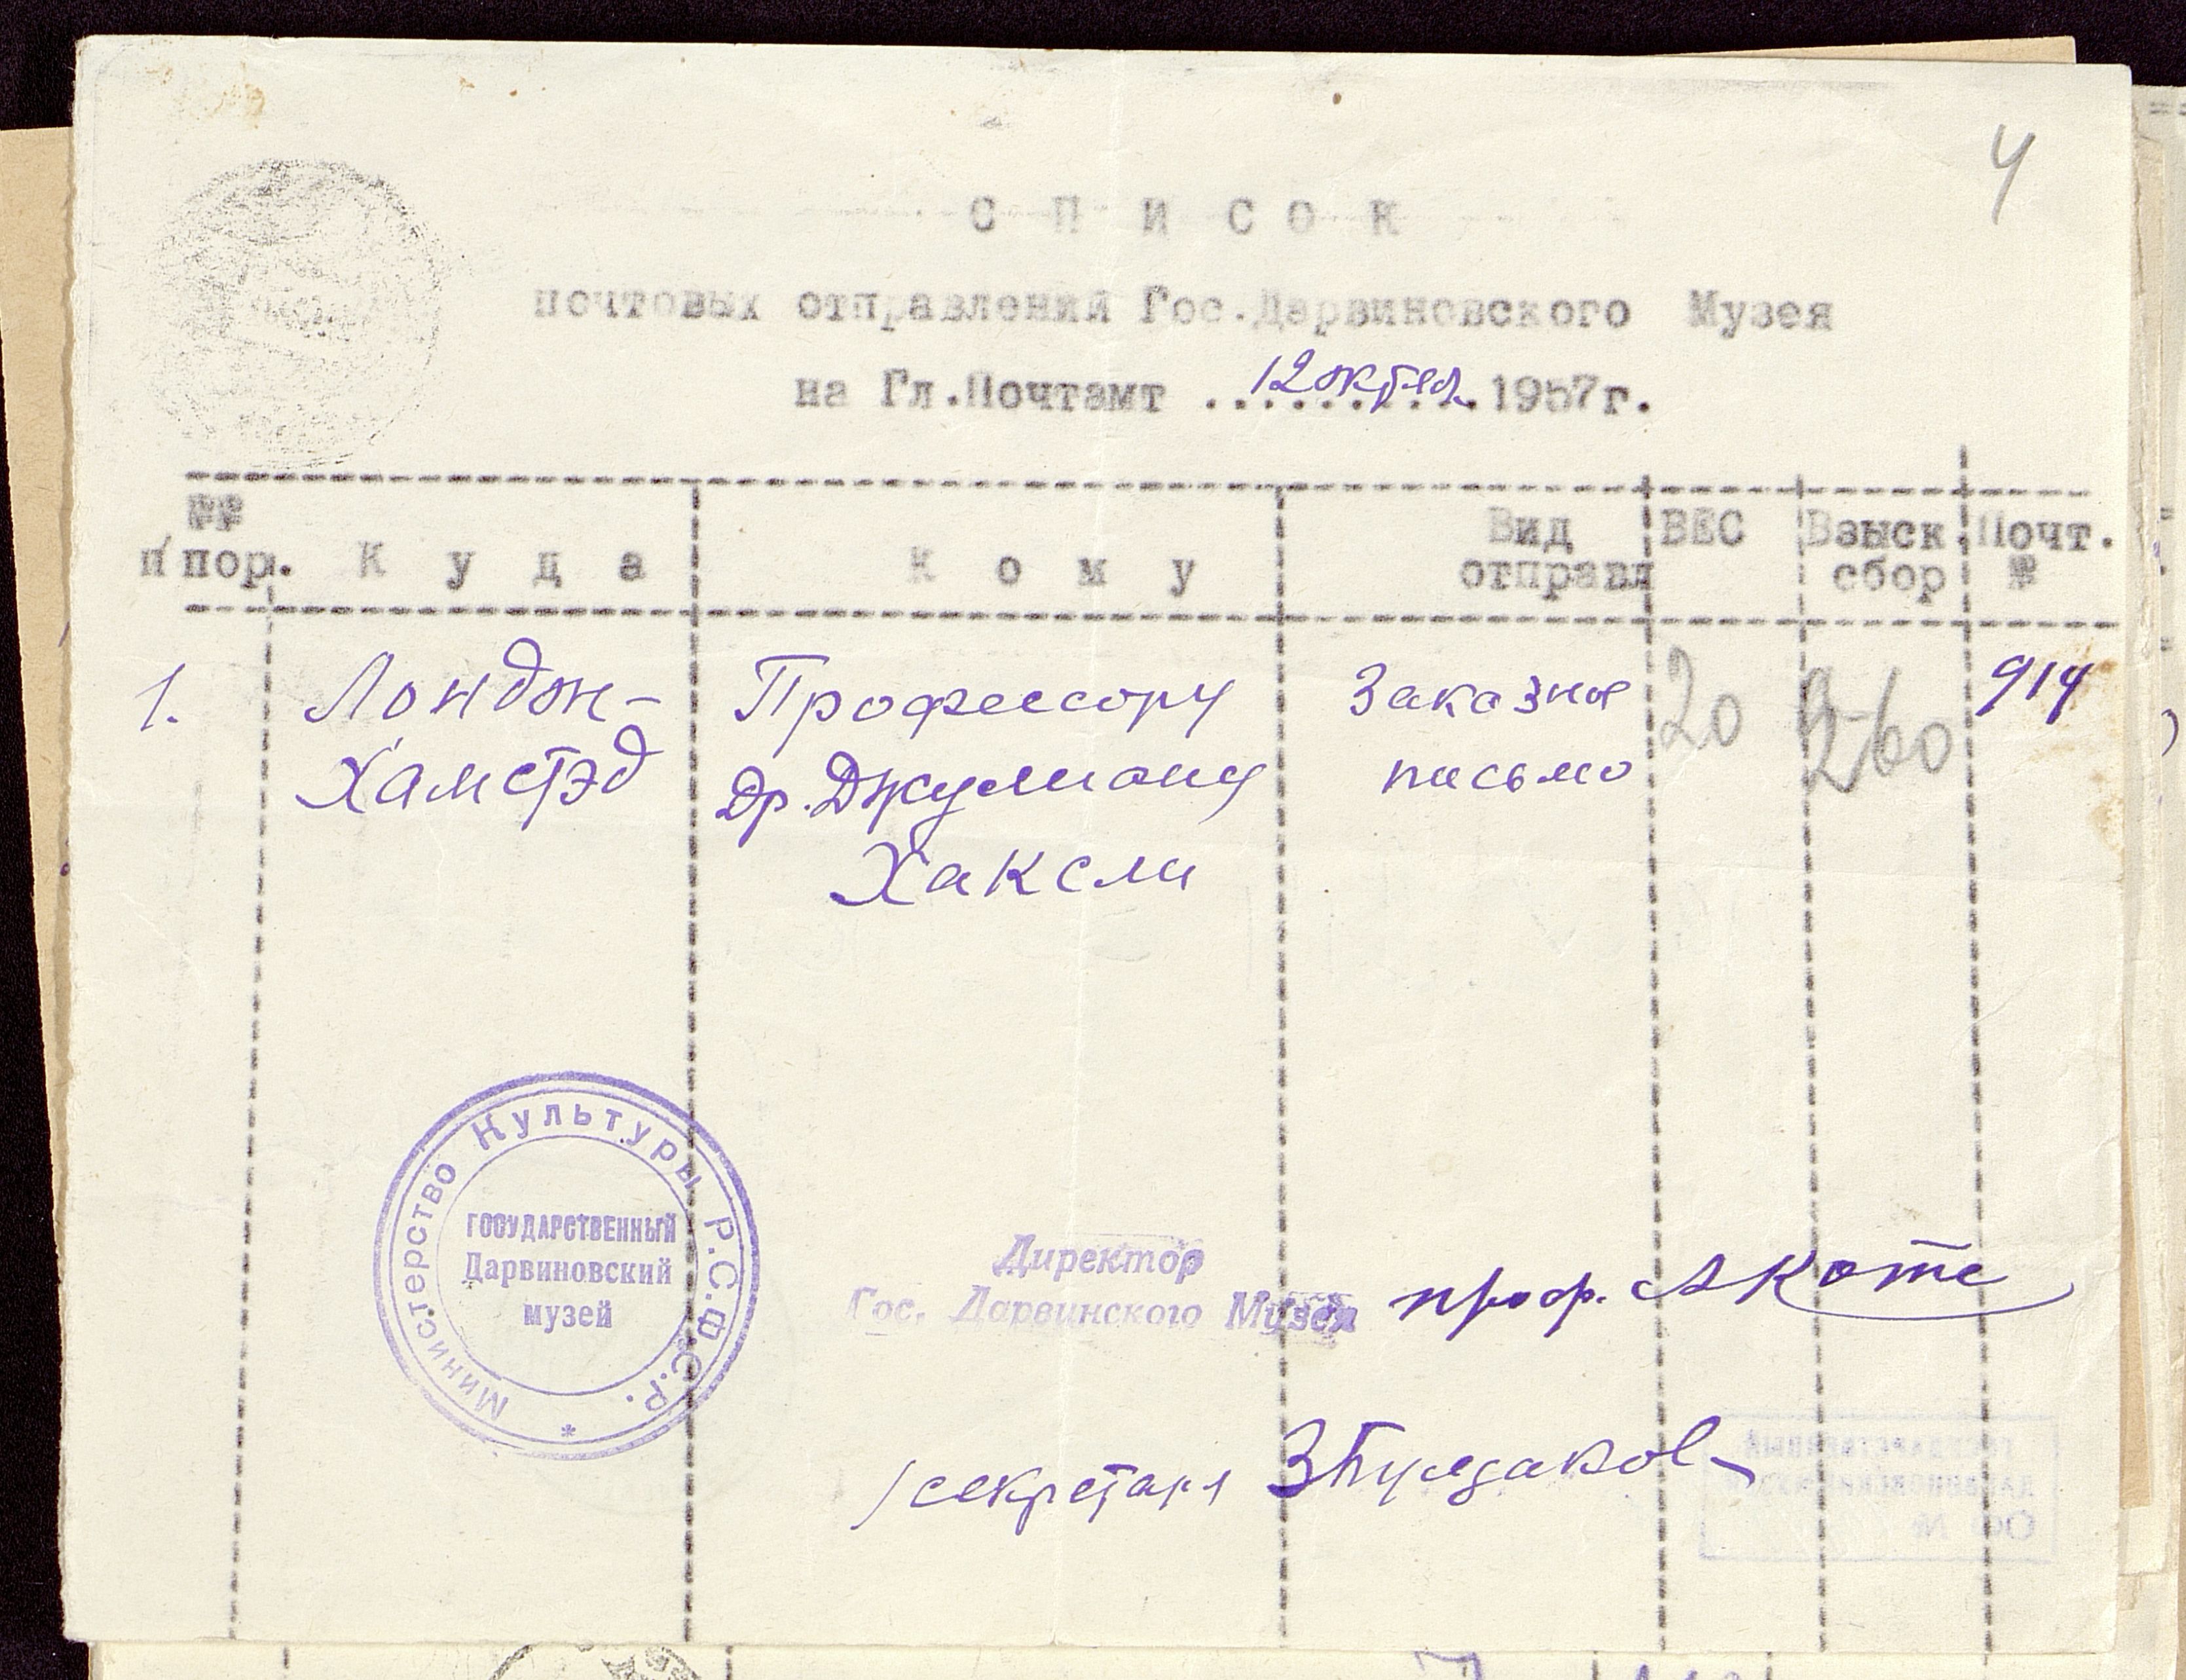 4
СПИСОК
почтовых отправлений Гос.Дарвиновского Музея
на Гл.Почтамт ..12 октяб. 1957г.
№№ п/пор. Куда Кому Вид отправл ВЕС Взыск. сбор Почт. №
1. Лондон- Профессору Заказное 20 2-60 914
Хамстэд др. Джулиану письмо
Хаксли
Министерство Культуры Р.С.Ф.С.Р.
ГОСУДАРСТВЕННЫЙ
Дарвиновский
музей
Директор
Гос. Дарвинского Музея проф. А Котс
секретарь